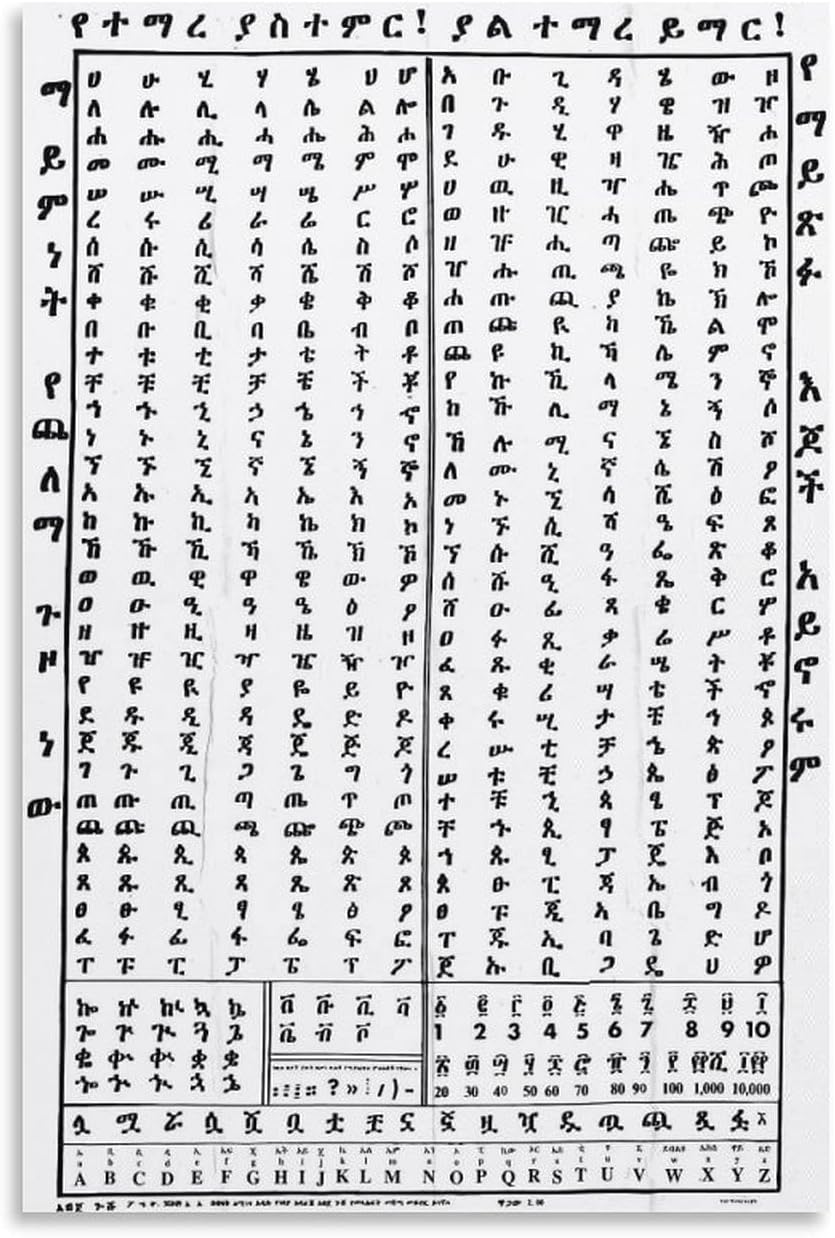 የተማረ ያስተምር! ያልተማረ ይማር!
ማይምነት የጨለማ ጉዞ ነው
ሀ ሁ ሂ ሃ ሄ ህ ሆ
ለ ሉ ሊ ላ ሌ ል ሎ
ሐ ሑ ሒ ሓ ሔ ሕ ሖ
መ ሙ ሚ ማ ሜ ም ሞ
ሠ ሡ ሢ ሣ ሤ ሥ ሦ
ረ ሩ ሪ ራ ሬ ር ሮ
ሰ ሱ ሲ ሳ ሴ ስ ሶ
ሸ ሹ ሺ ሻ ሼ ሽ ሾ
ቀ ቁ ቂ ቃ ቄ ቅ ቆ
በ ቡ ቢ ባ ቤ ብ ቦ
ተ ቱ ቲ ታ ቴ ት ቶ
ቸ ቹ ቺ ቻ ቼ ች ቾ
ኀ ኁ ኂ ኃ ኄ ኅ ኆ
ነ ኑ ኒ ና ኔ ን ኖ
ኘ ኙ ኚ ኛ ኜ ኝ ኞ
አ ኡ ኢ ኣ ኤ እ ኦ
ከ ኩ ኪ ካ ኬ ክ ኮ
ኸ ኹ ኺ ኻ ኼ ኽ ኾ
ወ ዉ ዊ ዋ ዌ ው ዎ
ዐ ዑ ዒ ዓ ዔ ዕ ዖ
ዘ ዙ ዚ ዛ ዜ ዝ ዞ
ዠ ዡ ዢ ዣ ዤ ዥ ዦ
የ ዩ ዪ ያ ዬ ይ ዮ
ደ ዱ ዲ ዳ ዴ ድ ዶ
ጀ ጁ ጂ ጃ ጄ ጅ ጆ
ገ ጉ ጊ ጋ ጌ ግ ጎ
ጠ ጡ ጢ ጣ ጤ ጥ ጦ
ጨ ጩ ጪ ጫ ጬ ጭ ጮ
ጰ ጱ ጲ ጳ ጴ ጵ ጶ
ጸ ጹ ጺ ጻ ጼ ጽ ጾ
ፀ ፁ ፂ ፃ ፄ ፅ ፆ
ፈ ፉ ፊ ፋ ፌ ፍ ፎ
ፐ ፑ ፒ ፓ ፔ ፕ ፖ
አ ቡ ጊ ዳ ሄ ው ዞ
በ ጉ ዲ ሃ ዌ ዝ ዦ
ገ ዱ ሂ ዋ ዜ ዥ ሖ
ደ ሁ ዊ ዛ ዤ ሕ ጦ
ሀ ዉ ዚ ዣ ሔ ጥ ጮ
ወ ዙ ዢ ሓ ጤ ጭ ዮ
ዘ ዡ ሒ ጣ ጬ ይ ኮ
ዠ ሑ ጢ ጫ ዬ ክ ኾ
ሐ ጡ ጪ ያ ኬ ኽ ሎ
ጠ ጩ ዪ ካ ኼ ል ሞ
ጨ ዩ ኪ ኻ ሌ ም ኖ
የ ኩ ኺ ላ ሜ ን ኞ
ከ ኹ ሊ ማ ኔ ኝ ሶ
ኸ ሉ ሚ ና ኜ ስ ሾ
ለ ሙ ኒ ኛ ሴ ሽ ዖ
መ ኑ ኚ ሳ ሼ ዕ ፎ
ነ ኙ ሲ ሻ ዔ ፍ ጾ
ኘ ሱ ሺ ዓ ፌ ጽ ቆ
ሰ ሹ ዒ ፋ ጼ ቅ ሮ
ሸ ዑ ፊ ጻ ቄ ር ሦ
ዐ ፉ ጺ ቃ ሬ ሥ ቶ
ፈ ጹ ቂ ራ ሤ ት ቾ
ጸ ቁ ሪ ሣ ቴ ች ኆ
ቀ ሩ ሢ ታ ቼ ኅ ጶ
ረ ሡ ቲ ቻ ኄ ጵ ፆ
ሠ ቱ ቺ ኃ ጴ ፅ ፖ
ተ ቹ ኂ ጳ ፄ ፕ ጆ
ቸ ኁ ጲ ፃ ፔ ጅ ኦ
ኀ ጱ ፂ ፓ ጄ እ ቦ
ጰ ፁ ፒ ጃ ኤ ብ ጎ
ፀ ፑ ጂ ኣ ቤ ግ ዶ
ፐ ጁ ኢ ባ ጌ ድ ሆ
ጀ ኡ ቢ ጋ ዴ ህ ዎ
የማይጽፉ እጆች አይኖሩም
ኰ ኵ ኲ ኳ ኴ
ጐ ጕ ጒ ጓ ጔ
ቈ ቍ ቊ ቋ ቌ
ኈ ኍ ኊ ኋ ኌ
ቨ ቩ ቪ ቫ
ቬ ቭ ቮ
፩ ፪ ፫ ፬ ፭ ፮ ፯ ፰ ፱ ፲
1 2 3 4 5 6 7 8 9 10
፳ ፴ ፵ ፶ ፷ ፸ ፹ ፺ ፻ ፲፻ ፼
20 30 40 50 60 70 80 90 100 1,000 10,000
ሏ ሟ ሯ ሷ ሿ ቧ ቷ ቿ ኗ ኟ ዟ ዧ ዷ ጧ ጯ ጿ ፏ
A B C D E F G H I J K L M N O P Q R S T U V W X Y Z